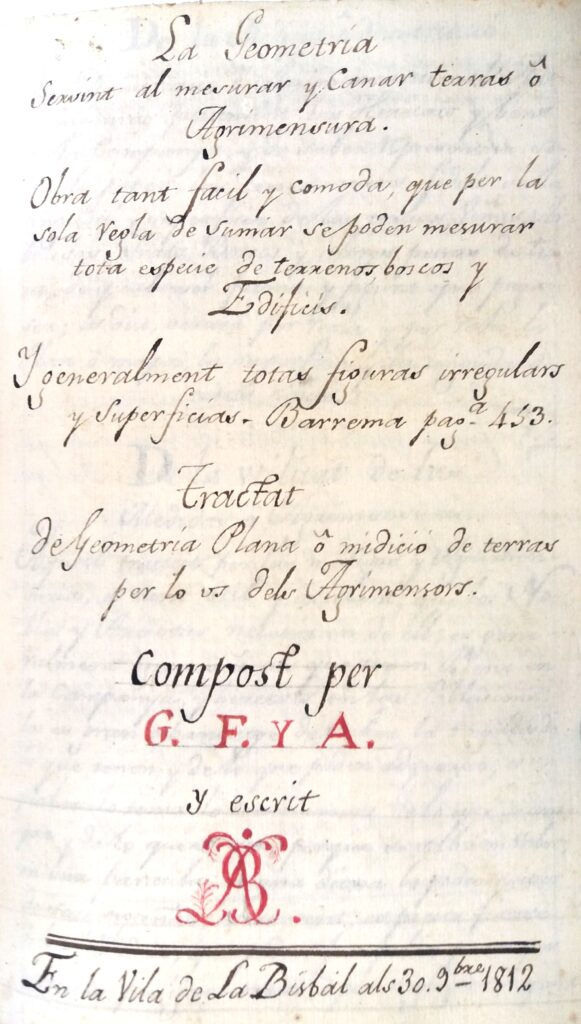 La Geometria
Servint al mesurar y Canar terras ô
Agrimensura.
Obra tant facil y comoda, que per la
sola regla de sumár se poden mesurár
tota especie de terrenos boscos y
Edificis.
Y generalment totas figuras irregulars
y superficias. Barrema pagª. 453.
Tractat
de Geometria Plana ô midició de terras
per lo us dels Agrimensors.
Compost per
G. F. Y A.
y escrit
En la Vila de La Bisbál als 30. 9bre 1812